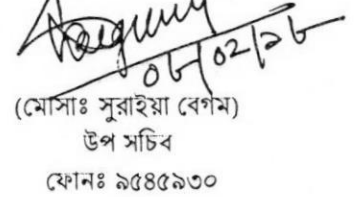 ০৮/০২/১৮
(মোসাঃ সুরাইয়া বেগম)
উপ সচিব
ফোনঃ ৯৫৪৫৯৩০